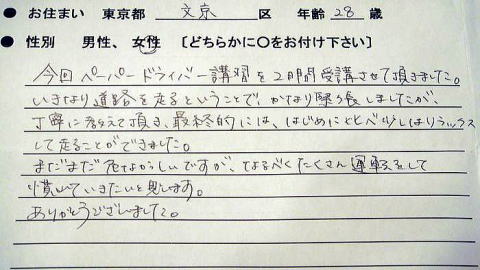 ● お住まい 東京都 文京 区 年齢 28 歳
● 性別 男性、女性 〔どちらかに○をお付け下さい〕
今回ペーパードライバー講習を2日間受講させて頂きました。
いきなり道路を走るということで、かなり緊張しましたが、
丁寧に教えて頂き、最終的には、はじめにくらべ少しはリラックス
して走ることができました。
まだまだ危なっかしいですが、なるべくたくさん運転をして
慣れていきたいと思います。
ありがとうございました。